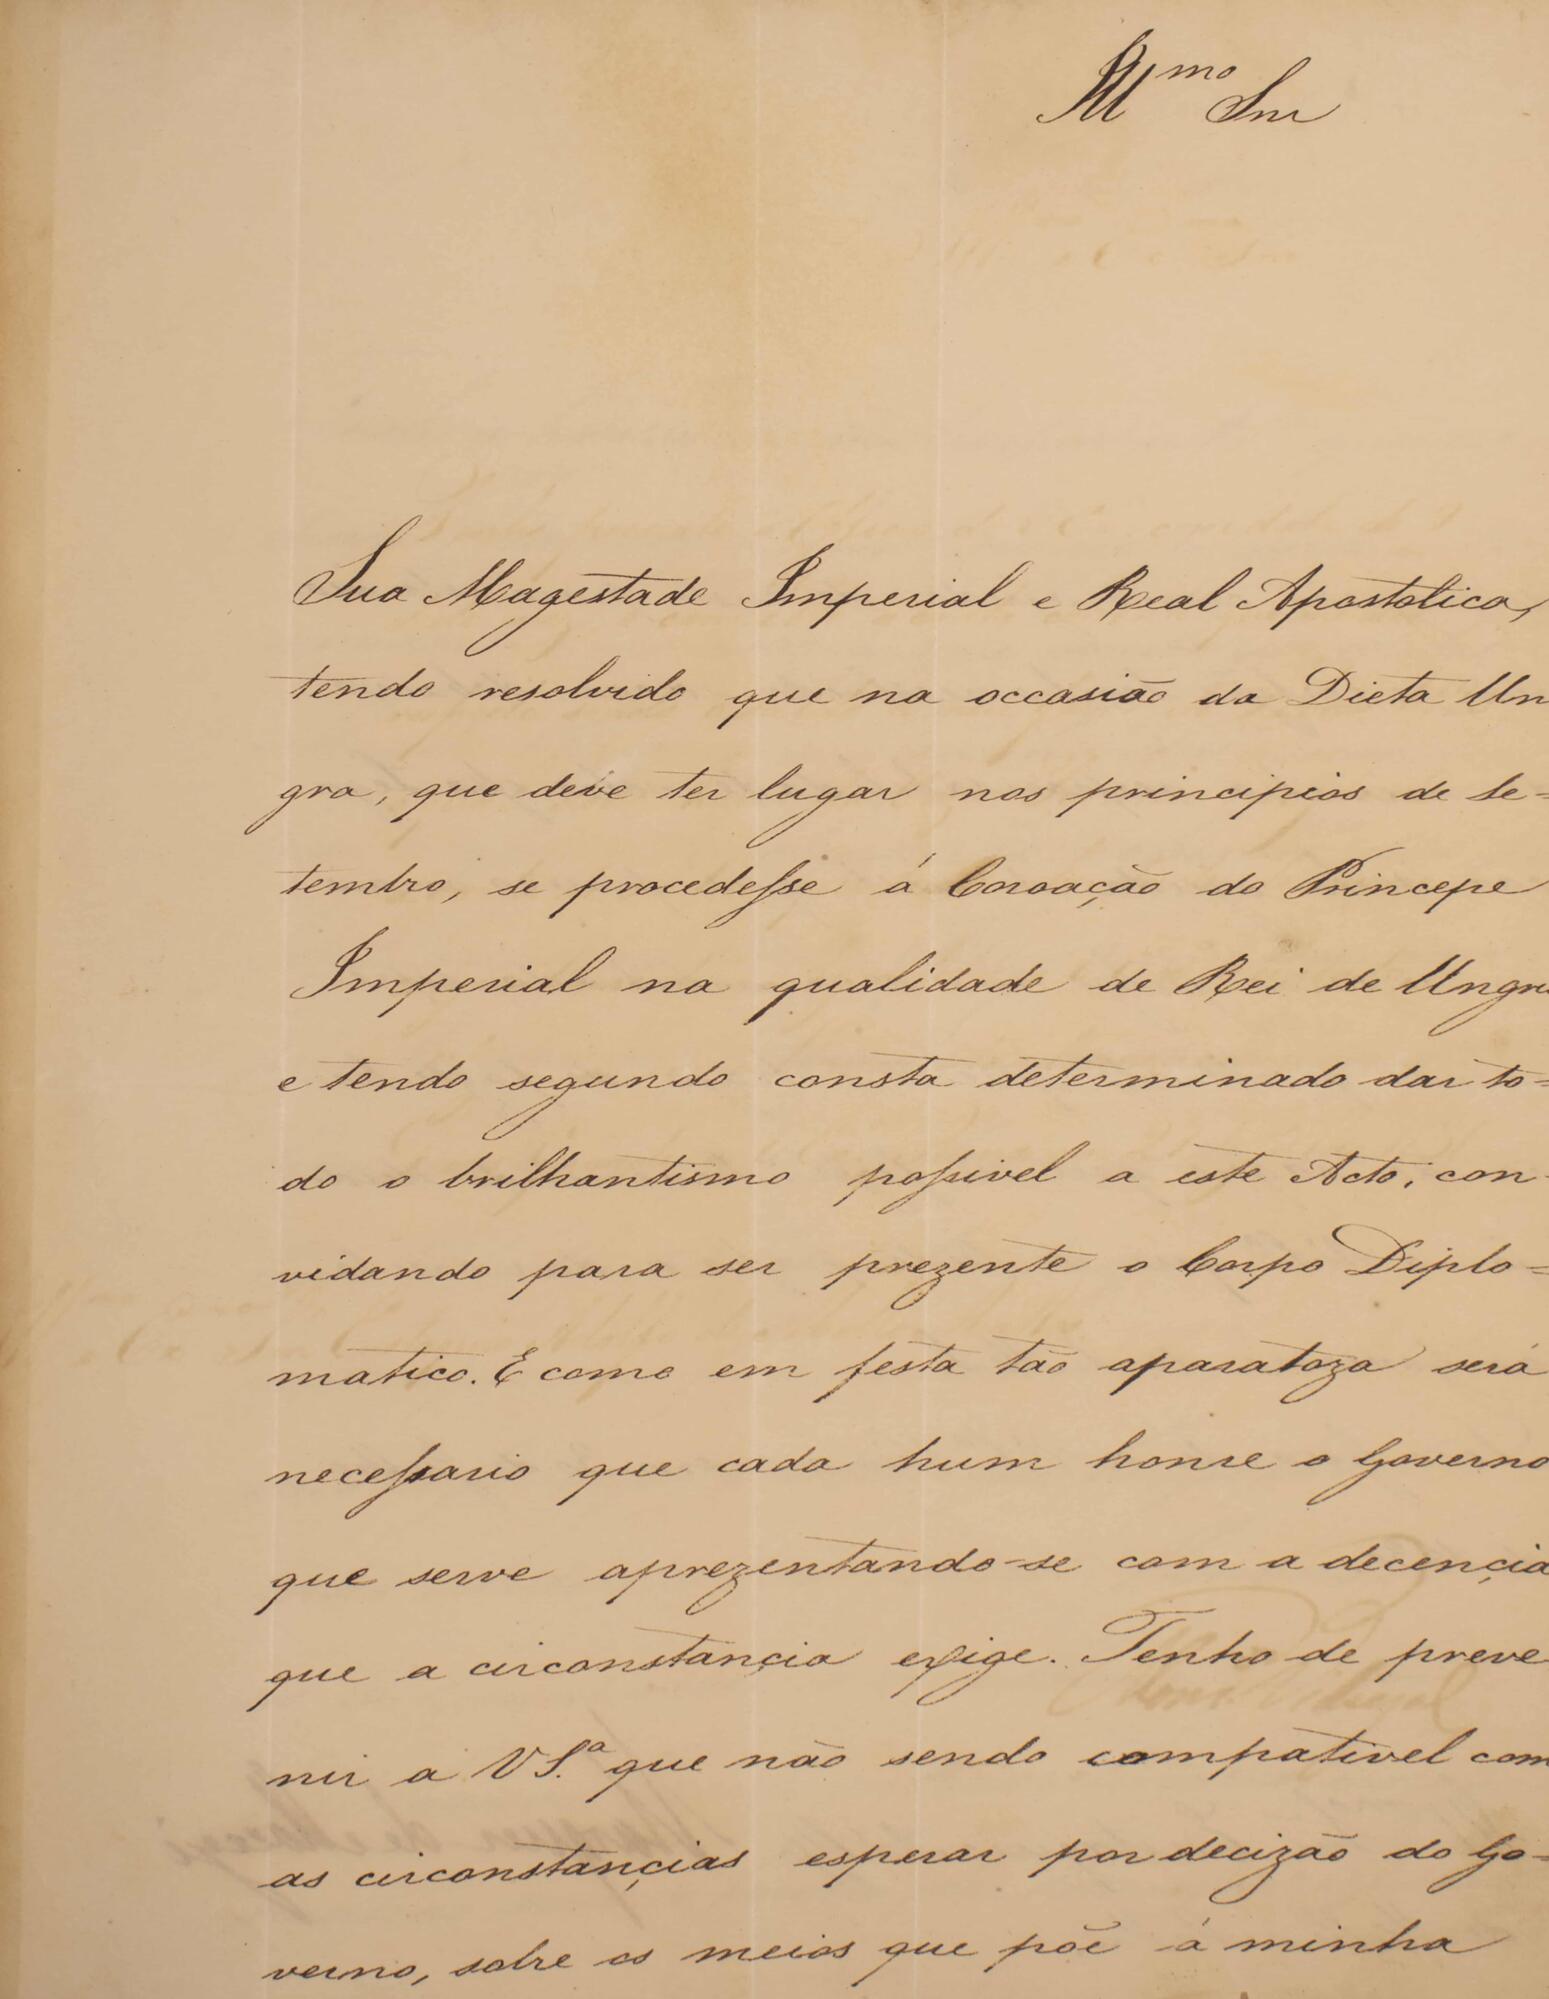 Ill^mo Snr
Sua Magestade Imperial e Real Apostolica,
tendo resolvido que na occasião da Dieta Un
gra, que deve ter lugar nos principios de Se=
tembro, se procedesse á Coroação do Princepe
Imperial na qualidade de Rei de Ungri
e tendo segundo consta determinado dar to=
do o brilhantismo possivel a este Acto, con-
vidando para ser prezente o Corpo Diplo=
matico. E como em festa tão aparatoza será
necessario que cada hum honre o Governo
que serve aprezentando-se com a decençia
que a circonstançia exige. Tenho de preve
nir a V S.ª que não sendo compativel com
as circonstançias esperar por decizão do Go=
verno, sobre os meios que põe á minha